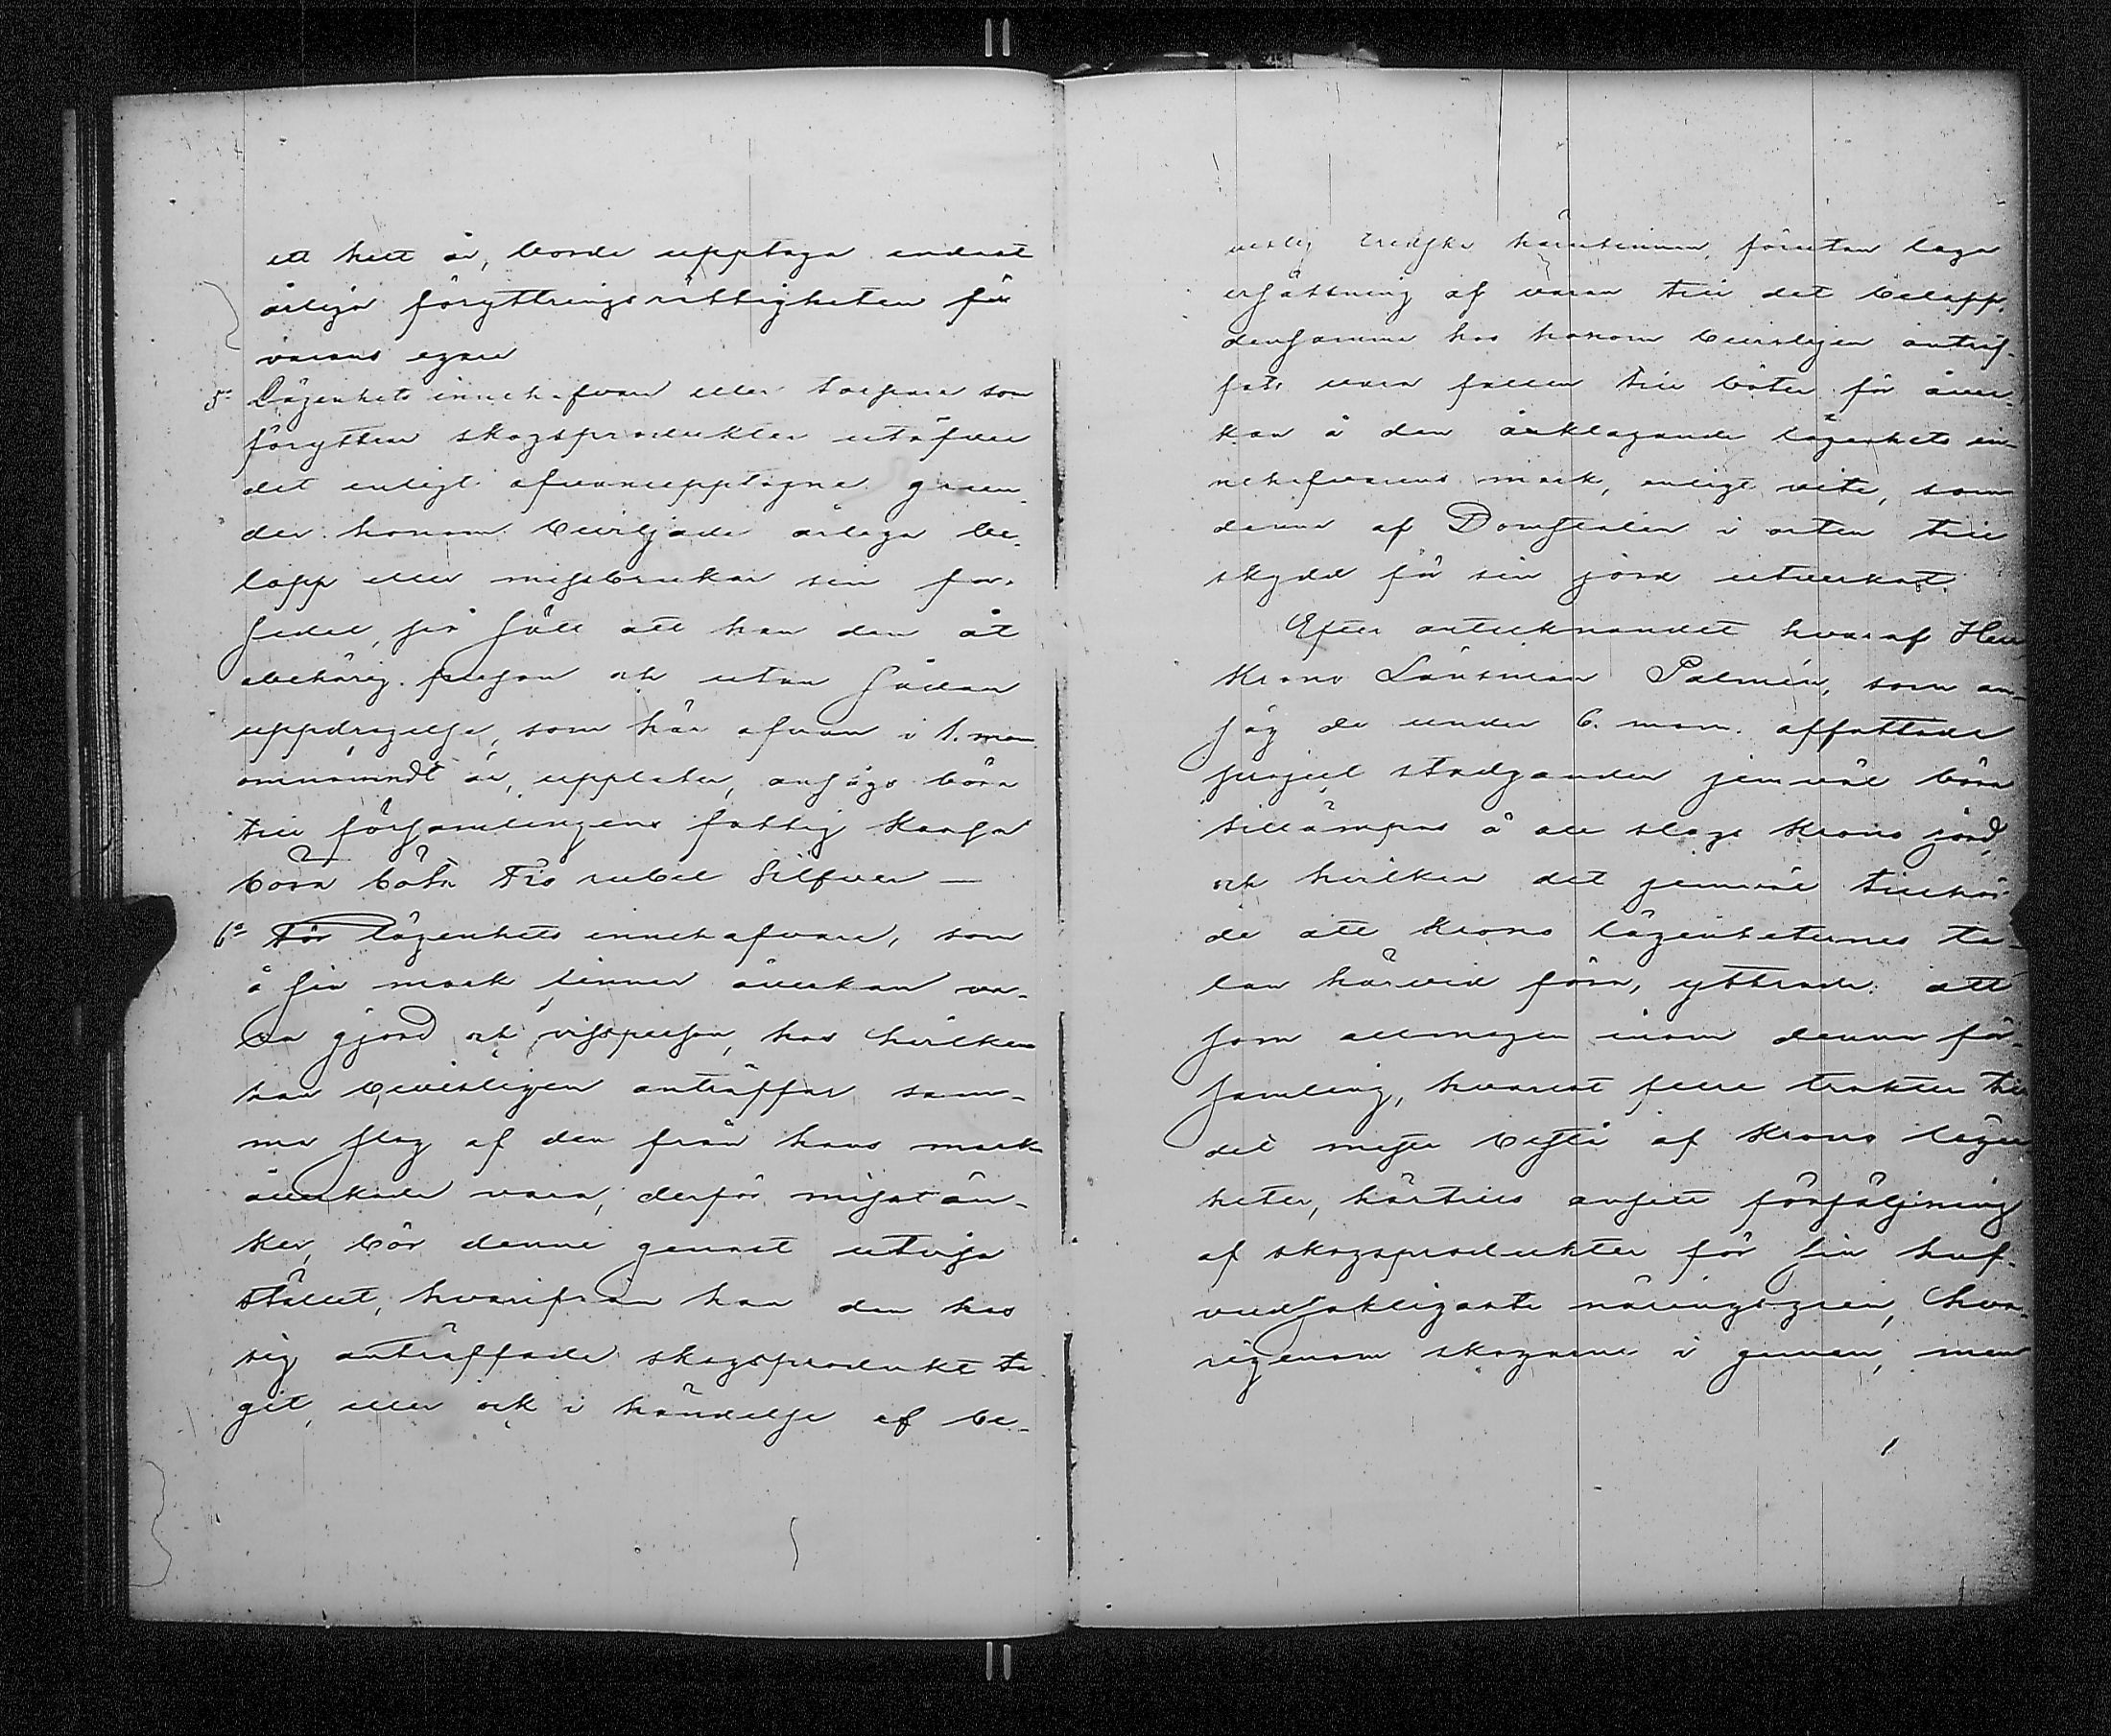 ett helt år, borde upptaga endast
årliga föryttringsrättigheten för
varans egare
5o Lägenhets innehafvare eller torpare som
föryttrar skogsprodukter utöfver
det enligt ofvanupptagne grun-
der honom beviljade årliga be-
lopp eller missbrukar sin for-
sedel, på sätt att han den åt
obehörig person och utan sådan
uppdragelse, som här ofvan i 1. mom.
omnämndt är, upplåter, ansågs böra
till församlingens fattig kassa
böra böta Tio rubel Silfver —
6o För lägenhets innehafvare, som
å sin mark finner åverkan va-
ra gjord och viss person, hos hvilken
han bevisligen anträffar sam-
ma slag af den från hans mark
åverkade vara, derför misstän-
ker, bör denne genast utvisa
stället, hvarifrån han den hos
sig anträffade skogsprodukt ta-
git, eller ock i händelse af be-
vislig tredska härutinnan, förutan laga
ersättning af varan till det belopp,
densamma hos honom bevisligen anträf-
fats vara fallen till böter för åver-
kan å den anklagande lägenhets in-
nehafvarens mark, enligt vite, som
denne af Domstolen i orten till
skydd för sin jord utverkat.
Efter antecknandet hvaraf Herr
Krono Länsman Palmén, som an-
såg de under 6. mom. affattade
project stadganden jemväl böra
tillämpas å all slags Krono jord,
och hvilken det jemväl tillhör-
de att Krono lägenheternes ta-
lan härvid föra, yttrade: att
som allmogen inom denna för-
samling, hvarest flere trakter till
det mesta bestå af Krono lägen
heter, härtills ansett försäljning
af skogsprodukter för sin huf-
vudsakligaste näringsgren, hva-
rigenom skogarne i gemen, men